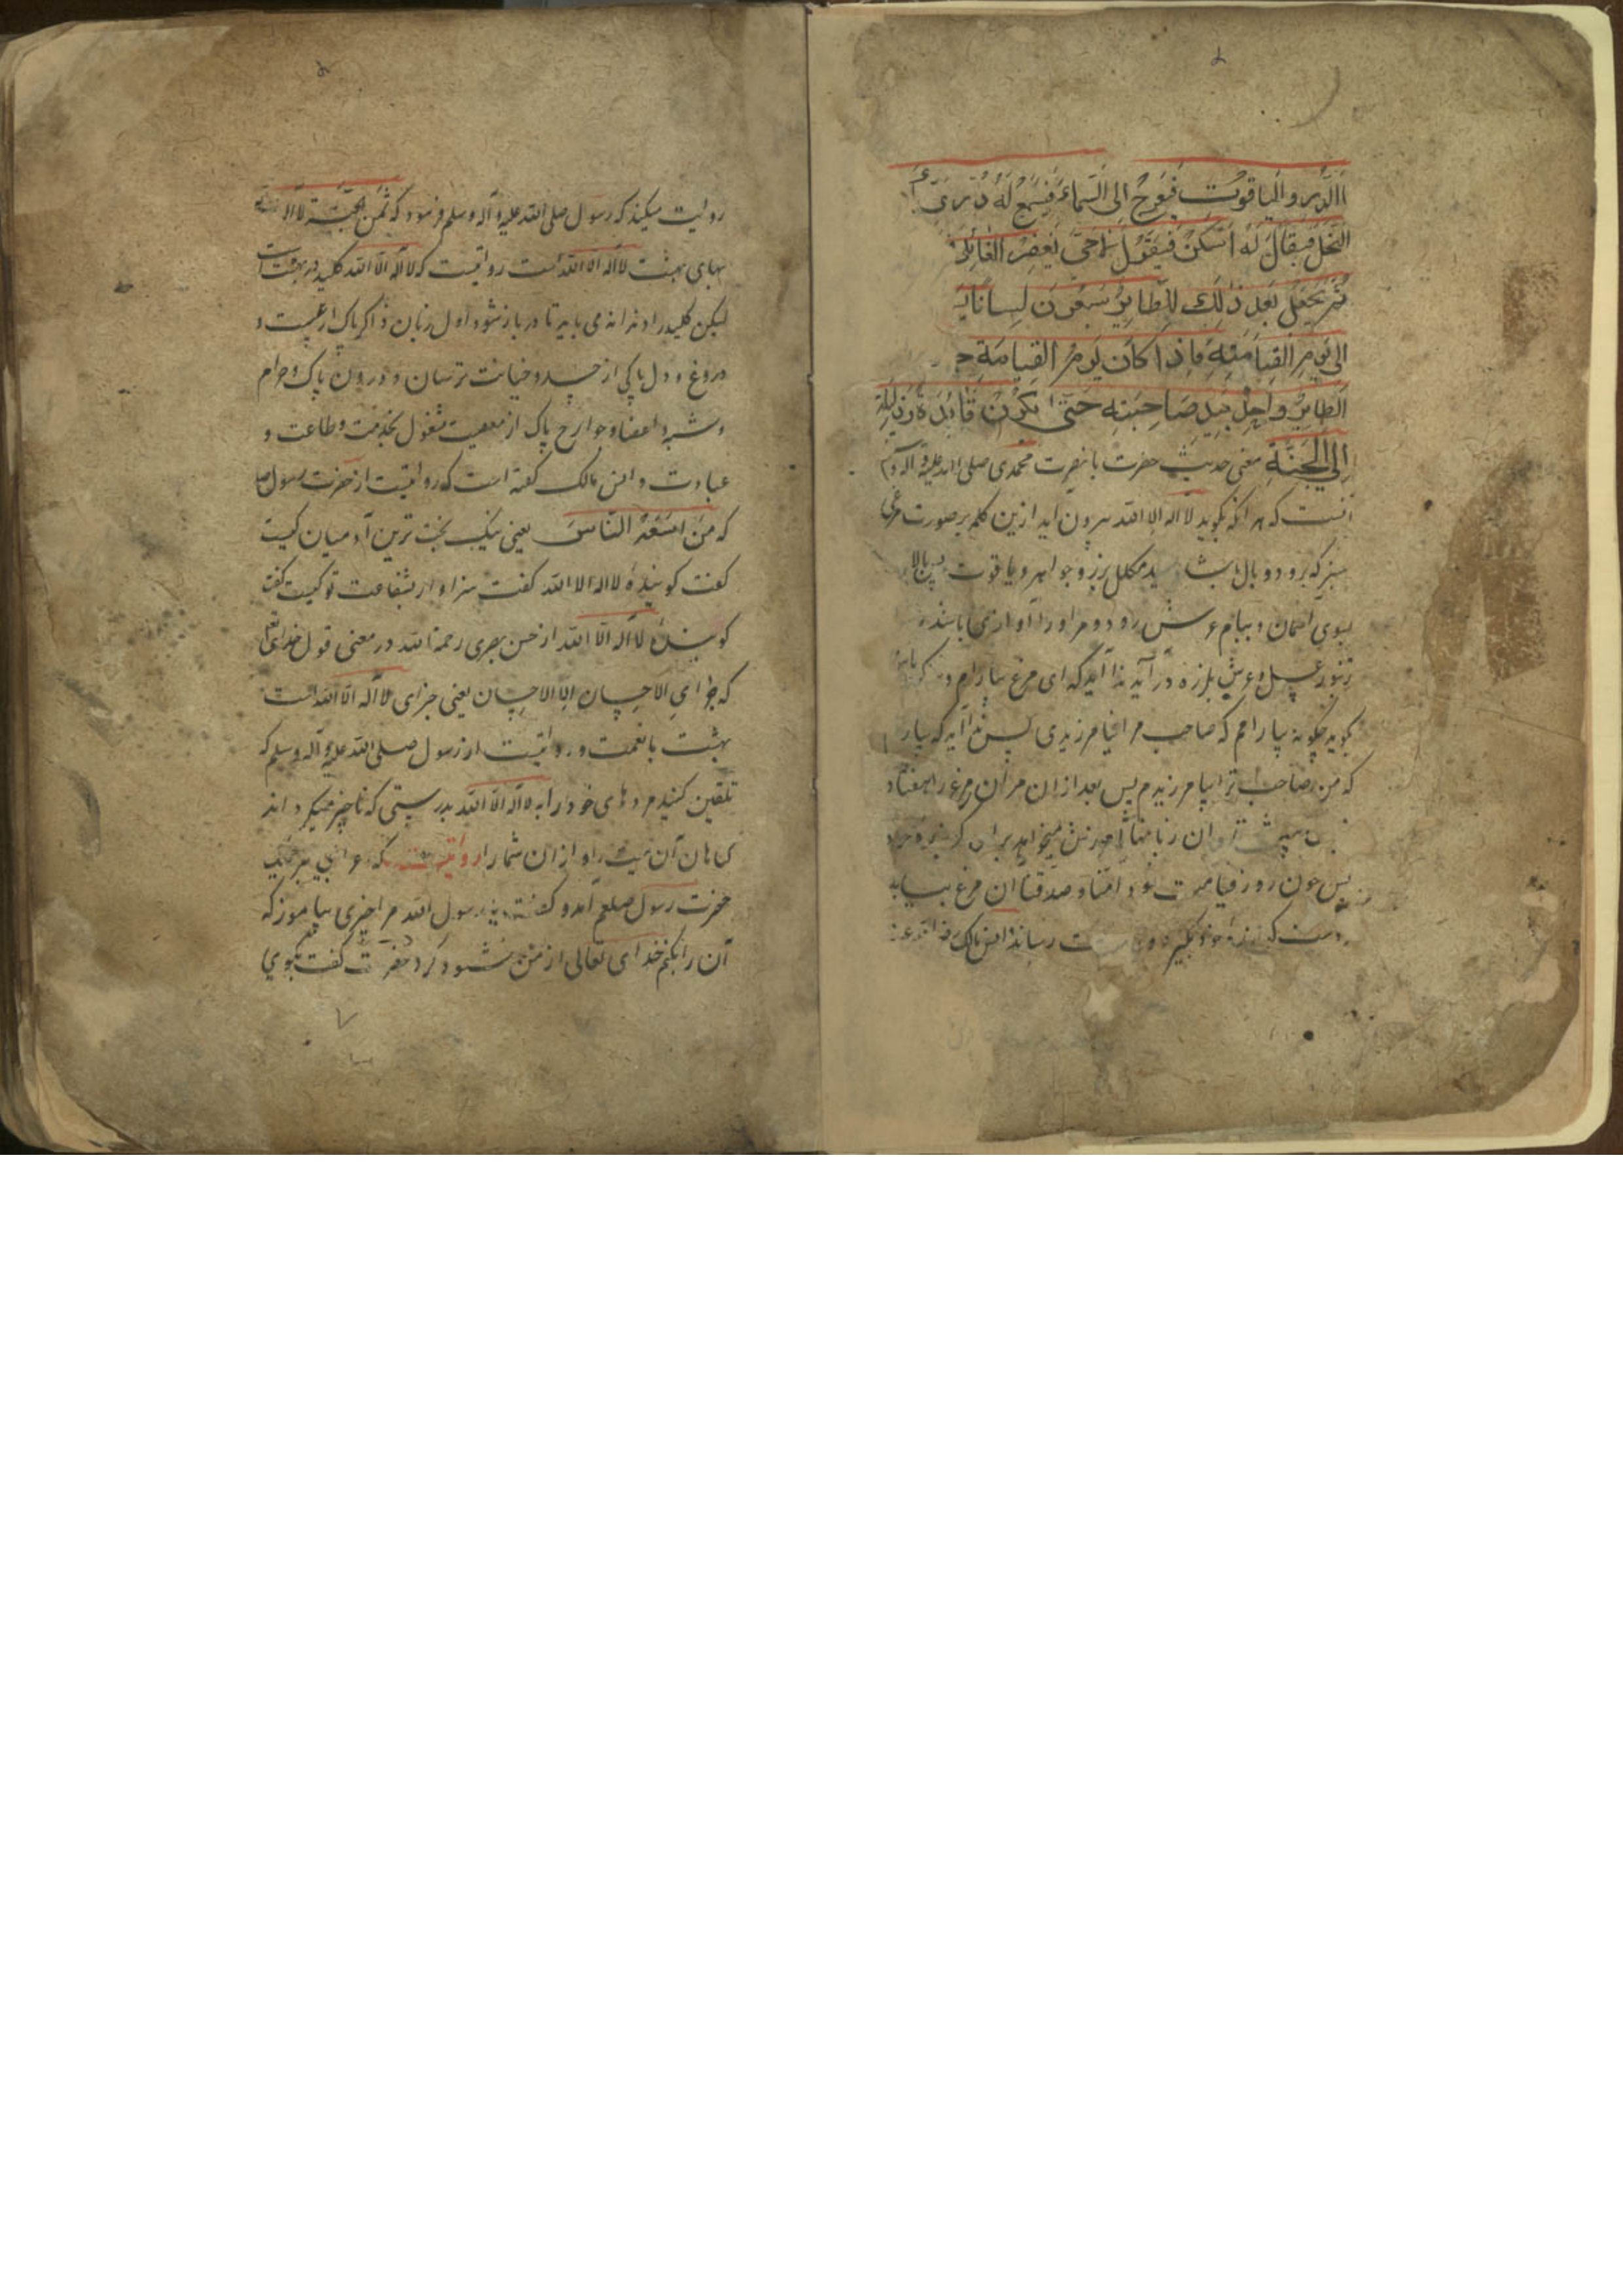 الدر والیاقوت فیعرج الی السماء فیسمع له دوی
النحل فیقال له اسکن فیقول لا حتی یغفر لقائلی
ثم یجعل بعد ذلک للطایر سبعون لسانا
الی یوم القیامة فاذا کان یوم القیامة
الطایر واحل بید صاحبه حتی یکون قائده
الی الجنة معنی حدیث حضرت با نصرت محمدی صلی الله علیه و آله وسلم
انست که هر انکه بکوید لا اله الا الله بیرون اید ازین کلمه بر صورت مرغی
سبز که برو دو بال باشد سپید مکلل بزر و جواهر و یاقوت پس بالا
بسوی اسمان و بیام عرش رود و مر او را آوازی باشد
زنبور عسل و عرش بلرزه در آید ندا آید که ای مرغ بیارام و
کوید چکونه بیارامم که صاحب مرا نیامرزیدی پس ندا آید که بیارام
که من صاحب ترا بیامرزیدم پس بعد از ان مر آن مرغ را هفتاد
ان زبانها امرزش میخواهد برای
پس چون روز قیامت شود امنا و صدقنا ان مرغ بیاید
دست خود بکیرد و رساند انس مالک رضی الله عنه
روایت میکند که رسول صلی الله علیه و آله وسلم فرمود که ثمن الجنة لا اله
بهای بهشت لا اله الا الله است روایتست که لا اله الا الله کلید در بهشت است
لیکن کلید را دندانه می باید تا در باز شود اول زبان ذاکر پاک از غیبت و
دروغ و دل پاکی از حسد و خیانت ترسان و درون پاک از حرام
و شبه و اعضا و جوارح پاک از معصیت مشغول بخدمت و طاعت و
عبادت و انس مالک کفته است که روایتست از حضرت رسول صلی
که من اسعد الناس یعنی نیک بخت ترین آدمیان کیست
کفت کوینده لا اله الا الله کفت سزاوار بشفاعت تو کیست کفت
کوینده لا اله الا الله از حسن بصری رحمة الله در معنی قول خدای تعالی
که جزای الاحسان الا الاحسان یعنی جزای لا اله الا الله است
بهشت با نعمت و روایتست از رسول صلی الله علیه و آله وسلم که
تلقین کنید مردهای خود را به لا اله الا الله بدرستی که ناچیز میکرداند
کناهان آن میت را و از ان شما را روایتست که عرابی بر
حضرت رسول صلعم آمد و کفت یا رسول الله مرا چیزی بیاموز که
آن را بکنم خدای تعالی از من خشنود کردد حضرت کفت بکوی